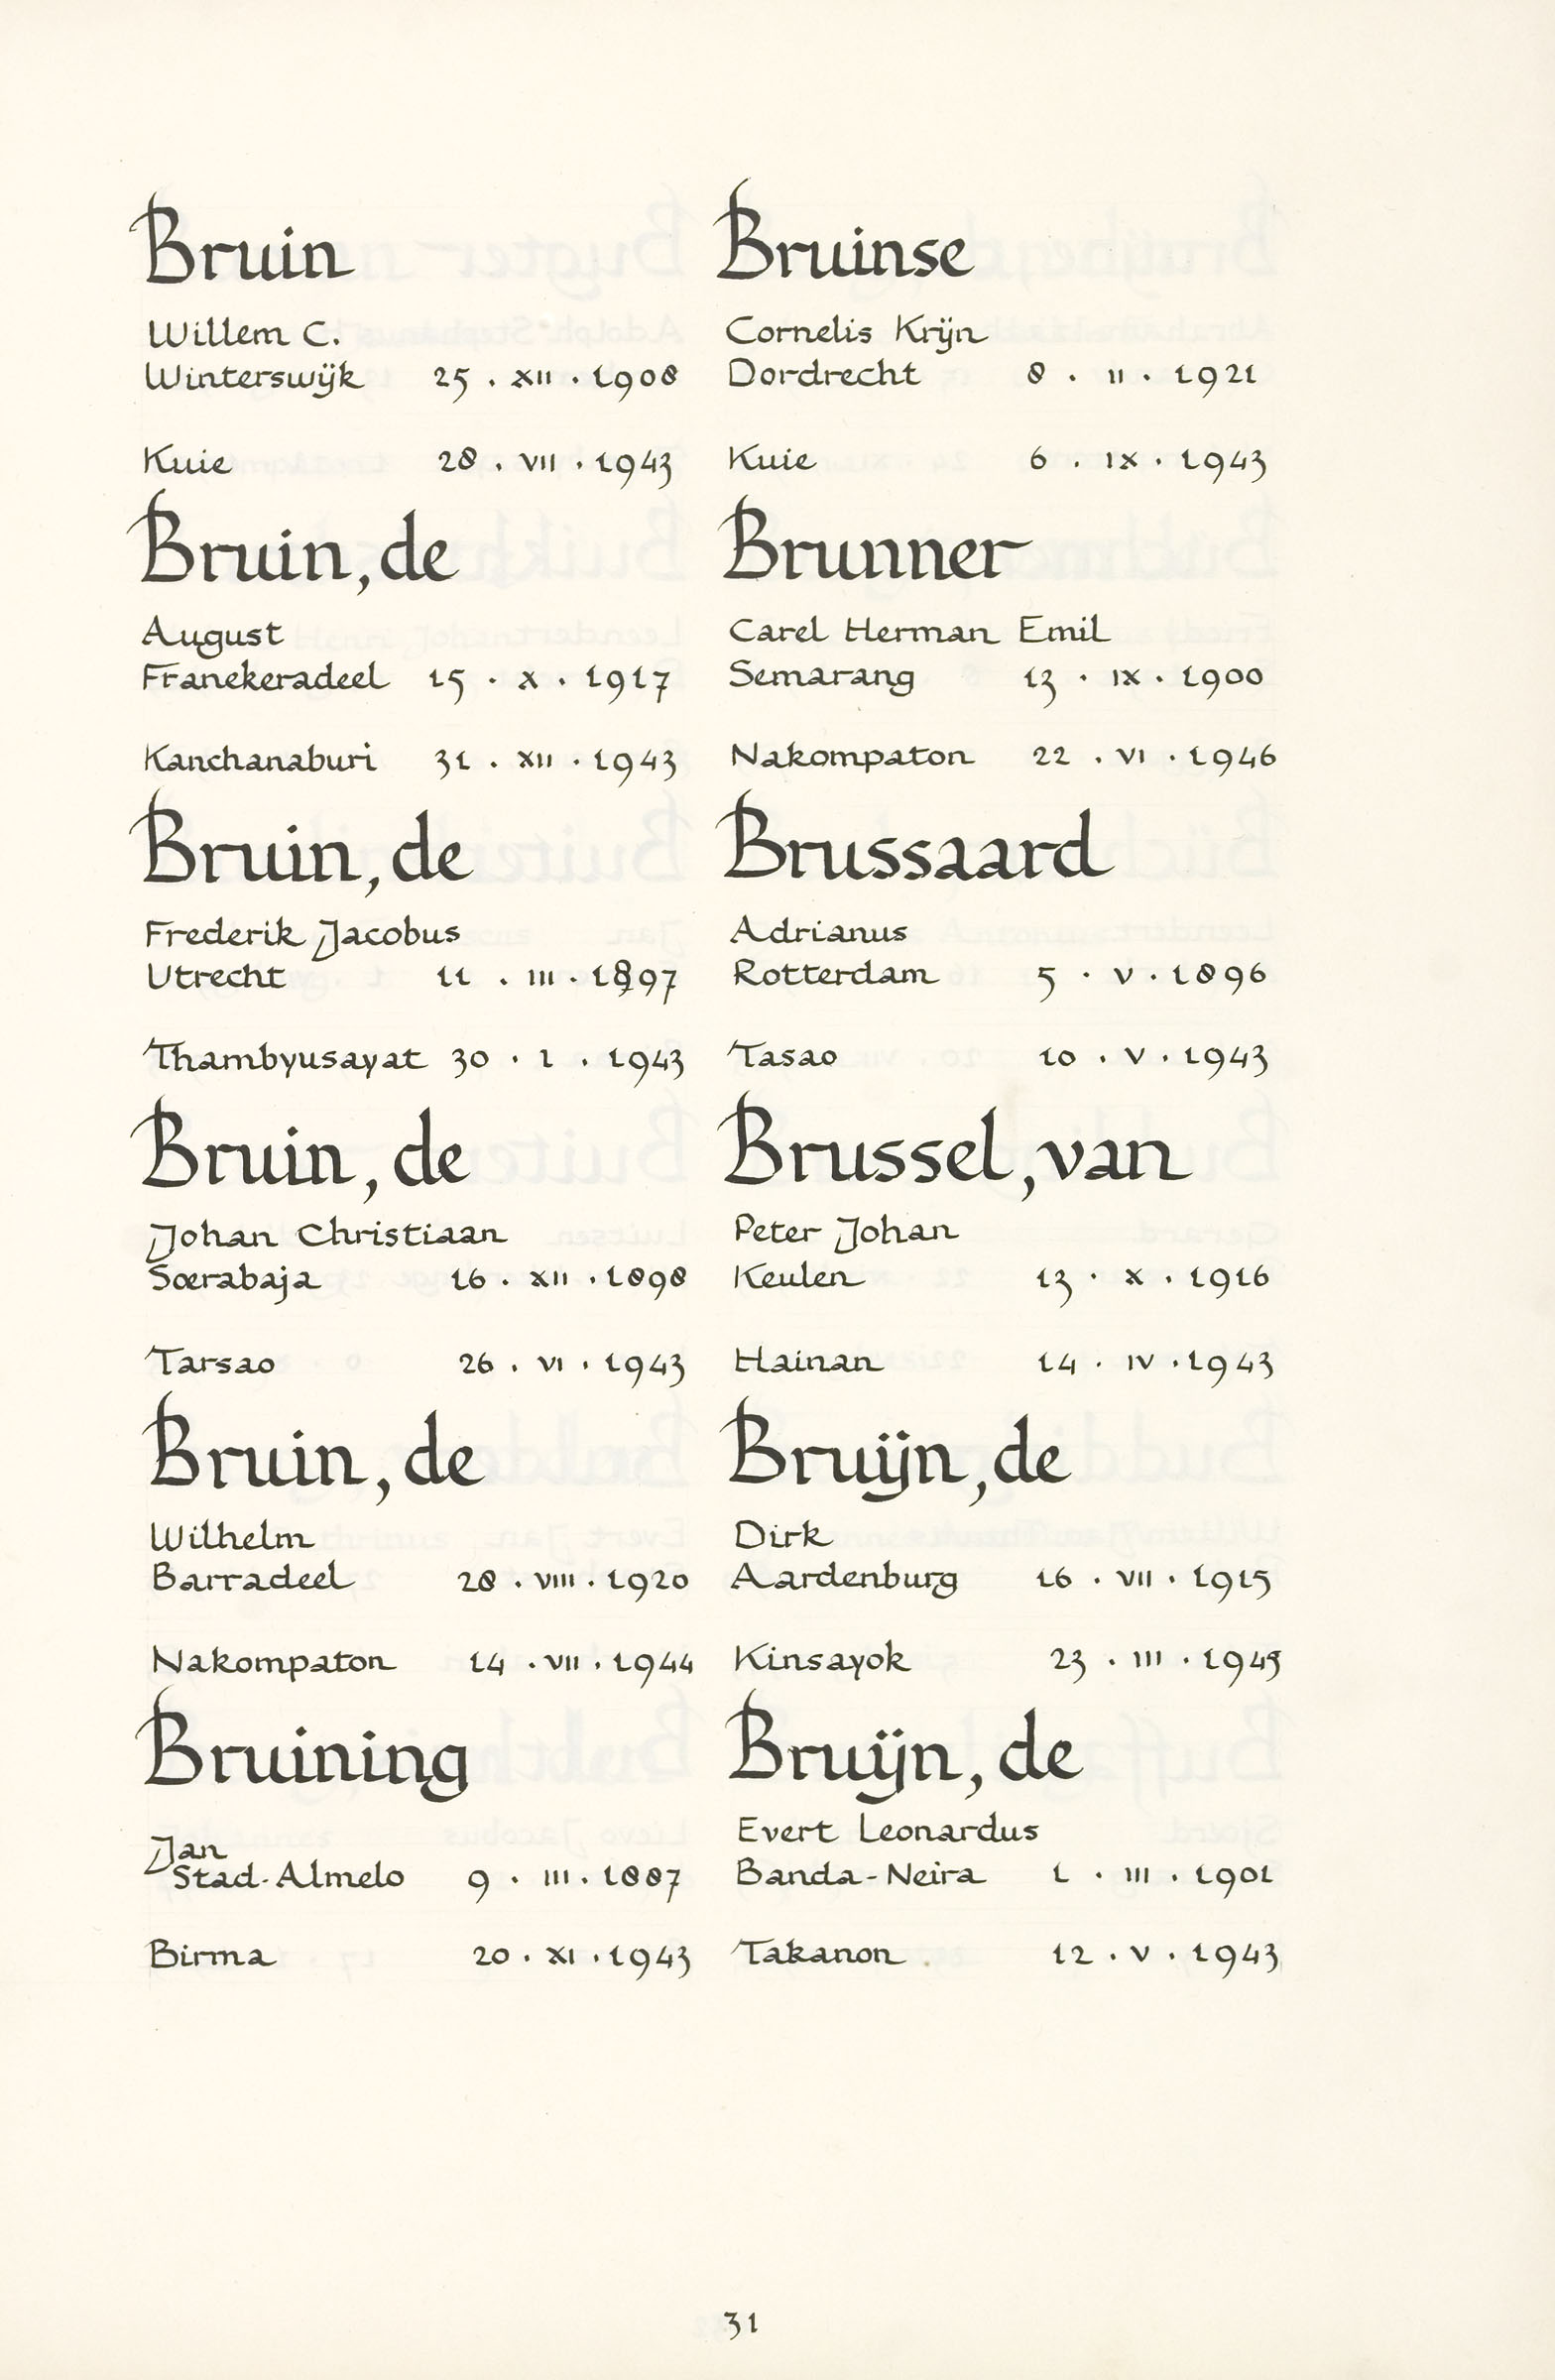 Bruin
Willem C.
Winterswijk 25 . XII . 1908
Kuie 28 . VII . 1943
Bruin, de
August
Franekeradeel 15 . X . 1917
Kanchanaburi 31 . XII . 1943
Bruin, de
Frederik Jacobus
Utrecht 11 . III . 1897
Thambyusayat 30 . 1 . 1943
Bruin, de
Johan Christiaan
Soerabaja 16 . XII . 1898
Tarsao 26 . VI . 1943
Bruin, de
Wilhelm
Barradeel 28 . VIII . 1920
Nakompaton 14 . VII . 1944
Bruining
Jan
Stad-Almelo 9 . III . 1887
Birma 20 . XI . 1943
Bruinse
Cornelis Krijn
Dordrecht 8 . II . 1921
Kuie 6 . IX . 1943
Brunner
Carel Herman Emil
Semarang 13 . IX . 1900
Nakompaton 22 . VI . 1946
Brussaard
Adrianus
Rotterdam 5 . V . 1896
Tasao 10 . V . 1943
Brussel, van
Peter Johan
Keulen 13 . X . 1916
Hainan 14 . IV . 1943
Bruijn, de
Dirk
Aardenburg 16 . VII . 1915
Kinsayok 23 . III . 1945
Bruijn, de
Evert Leonardus
Banda-Neira 1 . III . 1901
Takanon 12 . V . 1943
31